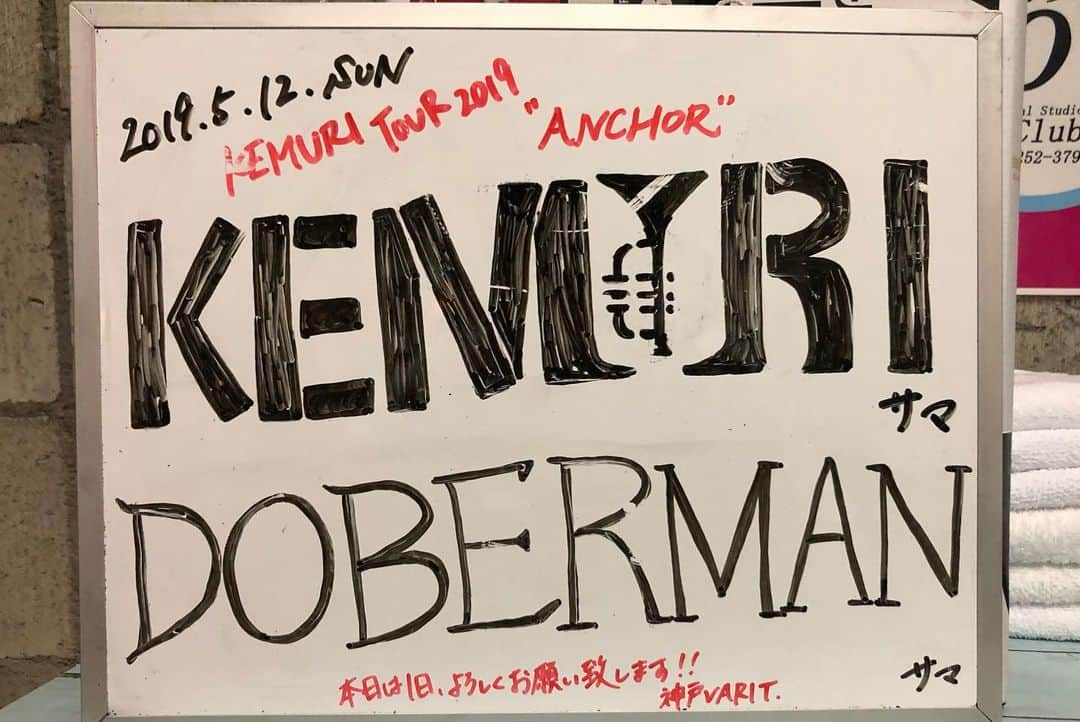 2019.5.12.SUN
KEMURI TOUR 2019 "ANCHOR"
KEMURI
サマ
DOBERMAN
サマ
本日は1日、よろしくお願い致します!!
神戸VARIT.
al Studio
Club
252-379